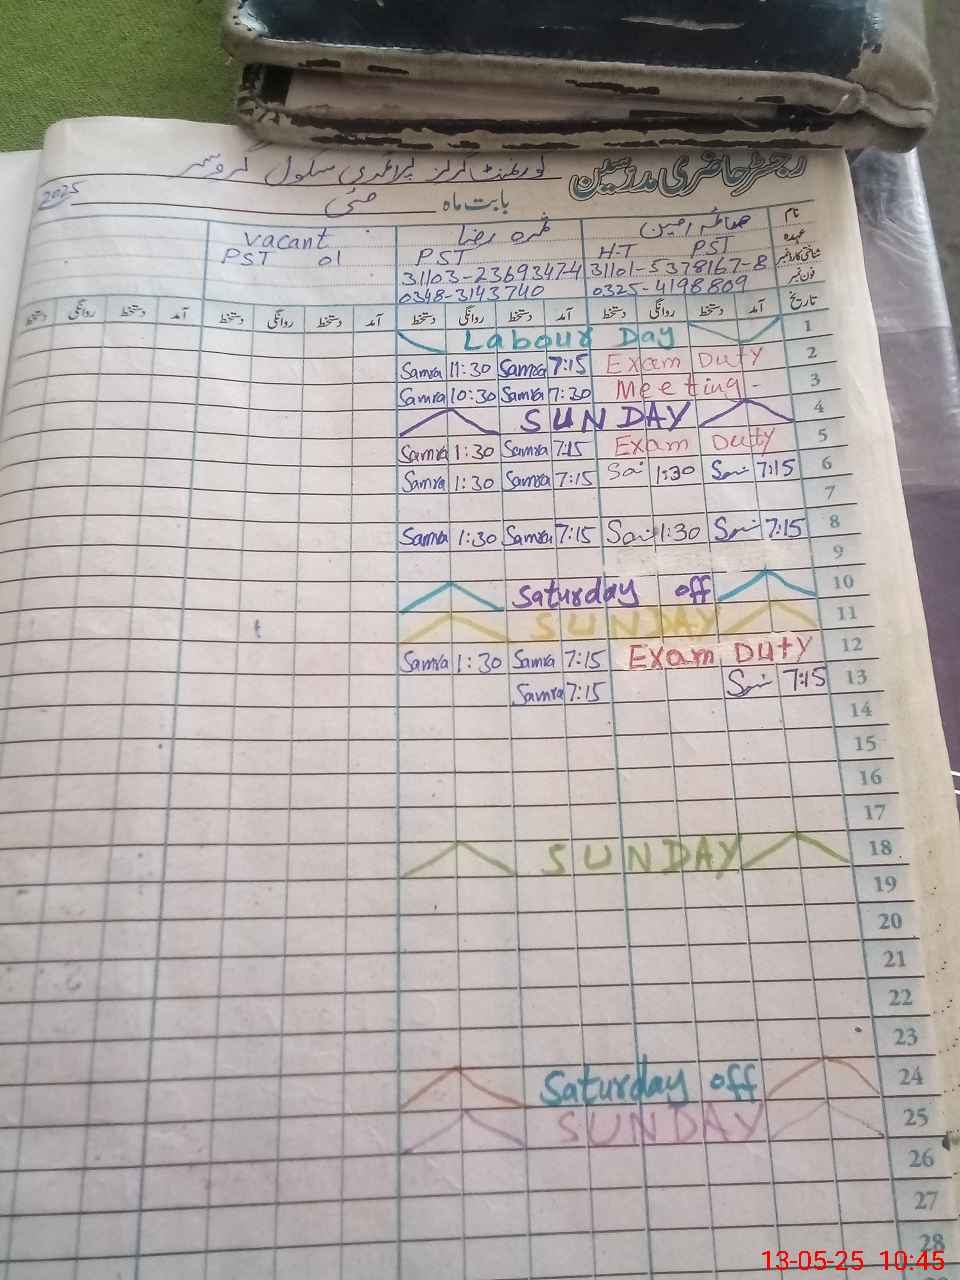 رجسٹر حاضری مدرسین گورنمنٹ گرلز پرائمری سکول
بابت ماہ مئی 2025
نام ثمرہ رضا vacant
عہدہ H.T PST PST PST 01
شناختی کارڈ نمبر 31101-5378167-8 31103-2369347-4
فون نمبر 0325-4198809 0348-3143740
تاریخ آمد دستخط روانگی دستخط آمد دستخط روانگی دستخط آمد دستخط روانگی دستخط آمد دستخط روانگی دستخط
1 Labour Day
Samra 11:30 Samra 7:15 Exam Duty 2
Samra 10:30 Samra 7:30 Meeting - 3
SUNDAY 4
Samra 1:30 Samra 7:15 Exam Duty 5
Samra 1:30 Samra 7:15 1:30 7:15 6
7
Samra 1:30 Samra 7:15 1:30 7:15 8
9
Saturday off 10
SUNDAY 11
Samra 1:30 Samra 7:15 Exam Duty 12
Samra 7:15 7:15 13
14
15
16
17
SUNDAY 18
19
20
21
22
23
Saturday off 24
SUNDAY 25
26
27
28
13-05-25 10:45